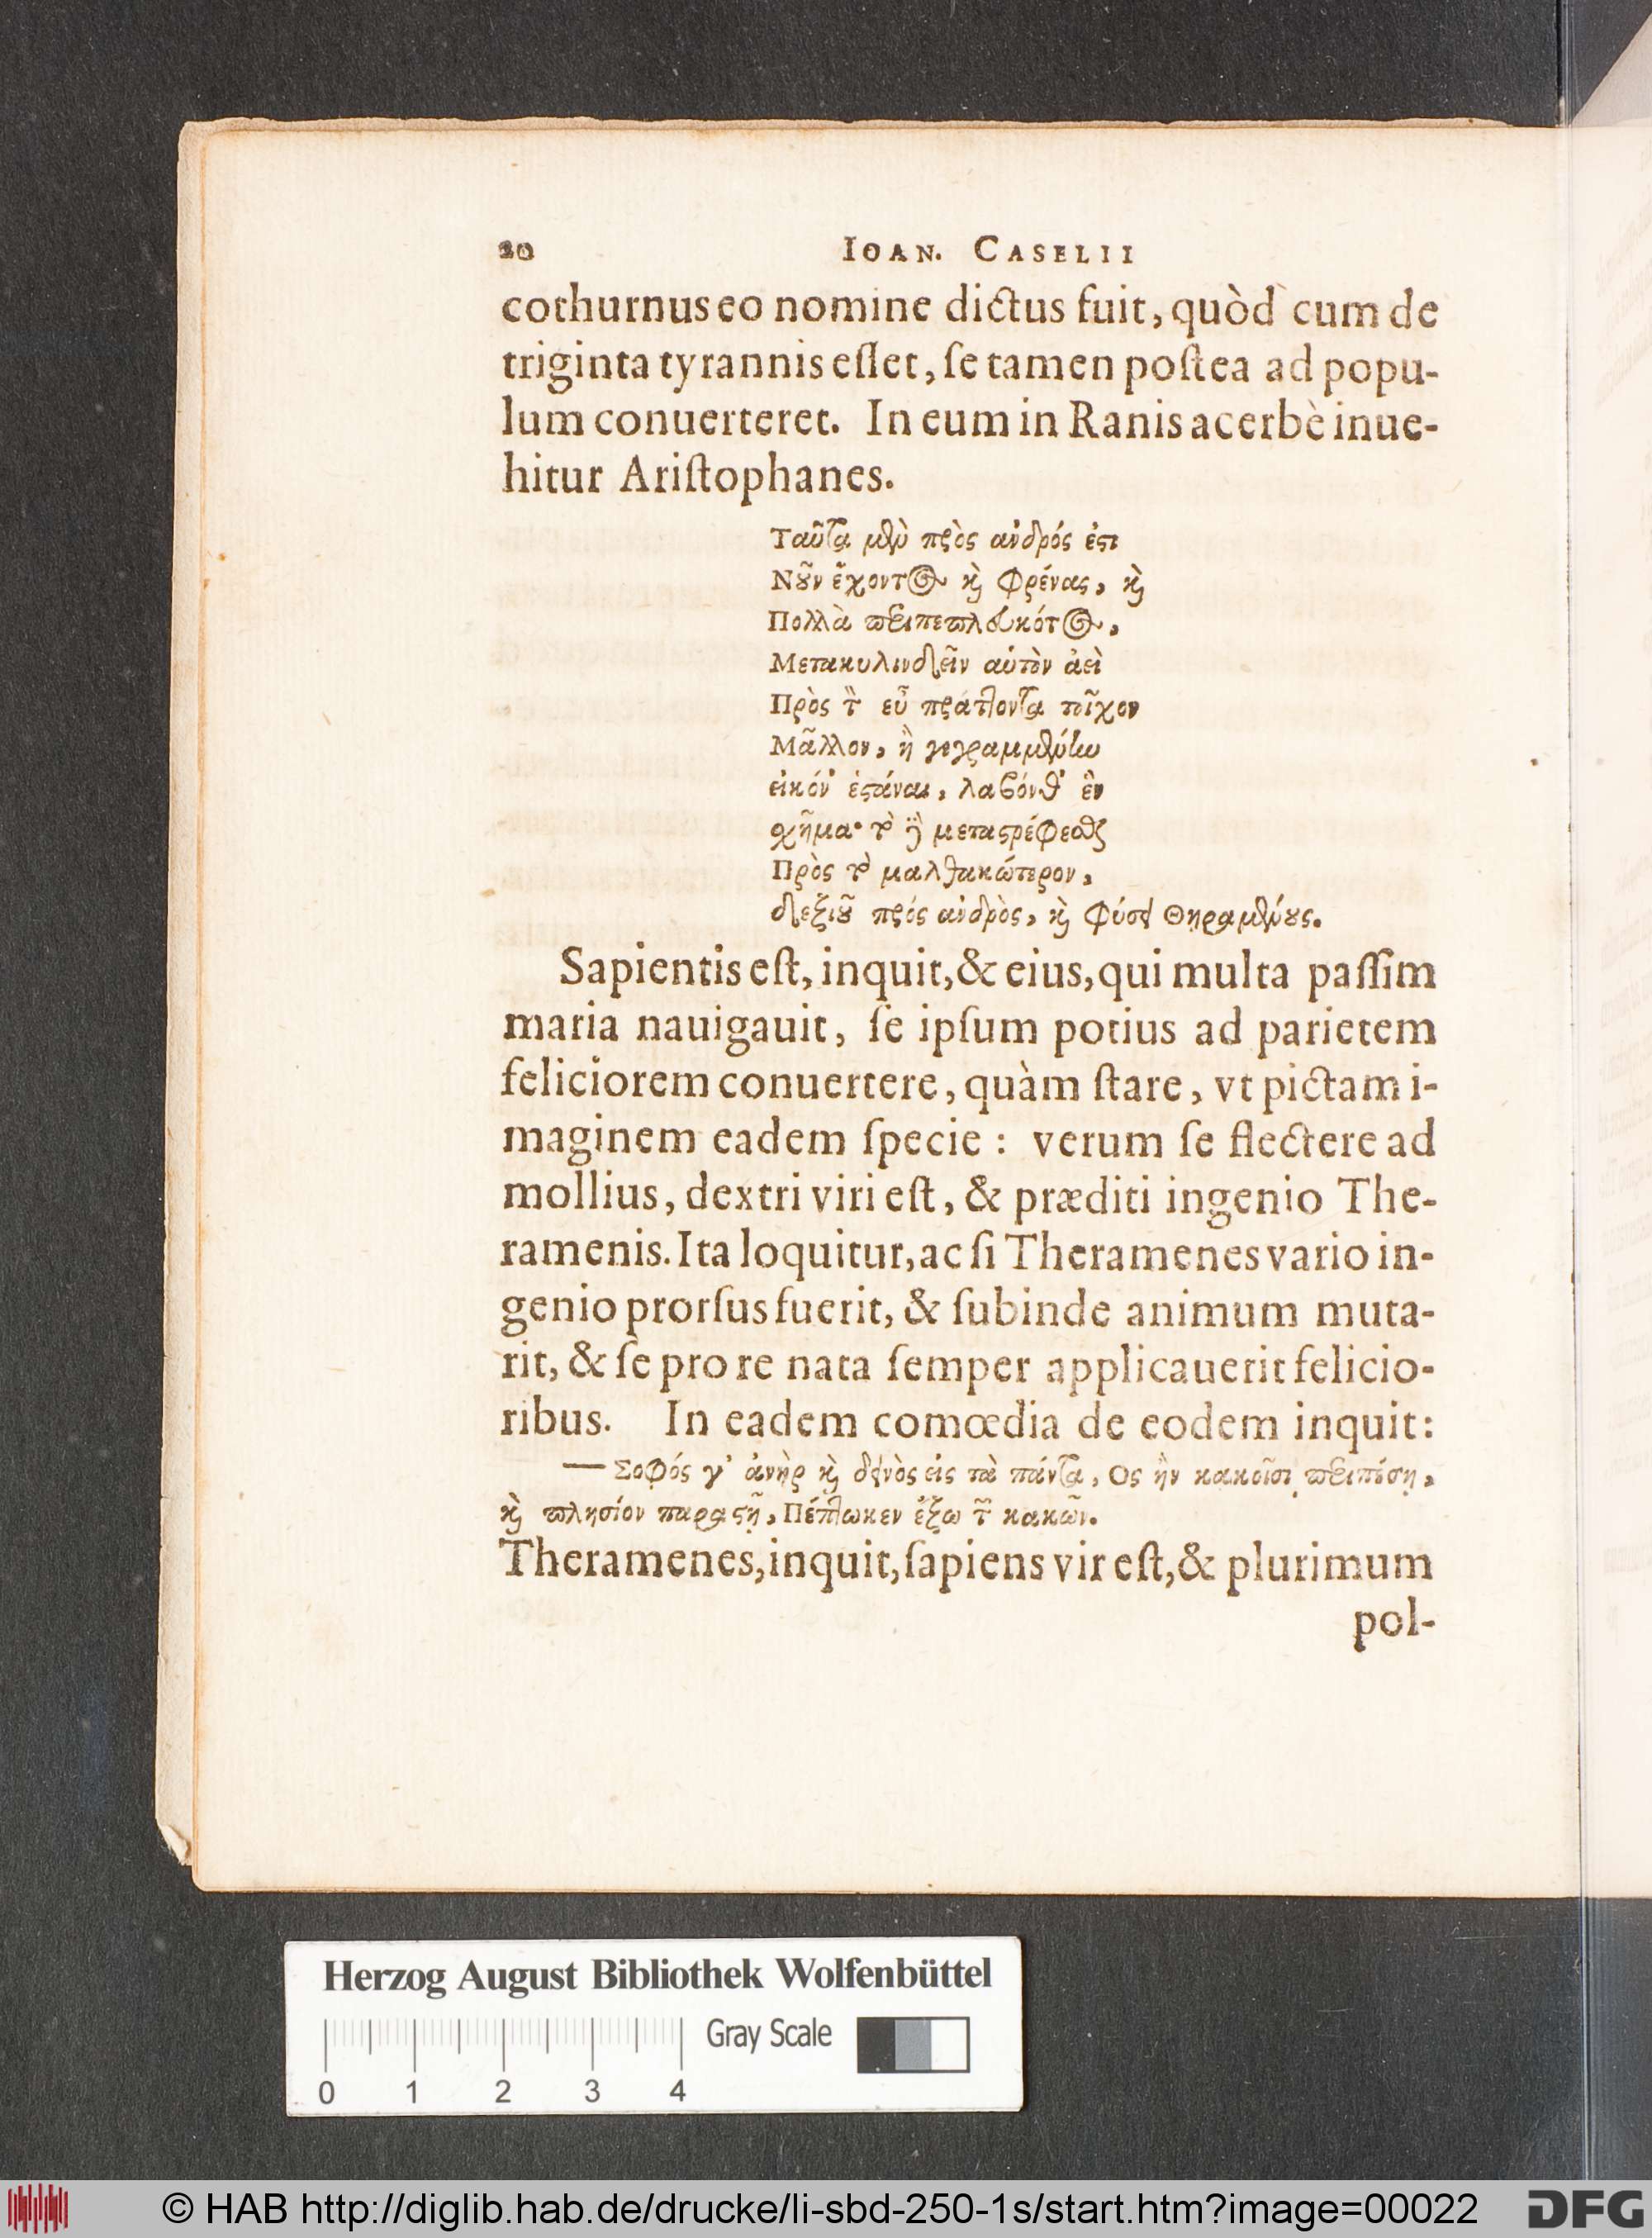 20 IOAN. CASELII
cothurnus eo nomine dictus fuit, quòd cum de
triginta tyrannis eſſet, ſe tamen poſtea ad popu-
lum conuerteret. In eum in Ranis acerbè inue-
hitur Ariſtophanes.
Ταῦτα μὲν πρὸς ἀνδρός ἐστι
Νοῦν ἔχοντος καὶ φρένας, καὶ
Πολλὰ περιπεπλευκότος,
Μετακυλινδεῖν αὑτὸν ἀεὶ
Πρὸς τὸν εὖ πράττοντα τοῖχον
Μᾶλλον, ἢ γεγραμμένην
εἰκόν' ἑστάναι, λαβόνθ' ἓν
σχῆμα· τὸ δὲ μεταστρέφεσθαι
Πρὸς τὸ μαλθακώτερον,
δεξιοῦ πρός ἀνδρὸς, καὶ φύσει Θηραμένους.
Sapientis eſt, inquit, & eius, qui multa paſſim
maria nauigauit, ſe ipſum potius ad parietem
feliciorem conuertere, quàm ſtare, vt pictam i-
maginem eadem ſpecie : verum ſe flectere ad
mollius, dextri viri eſt, & præditi ingenio The-
ramenis. Ita loquitur, ac ſi Theramenes vario in-
genio prorſus fuerit, & ſubinde animum muta-
rit, & ſe pro re nata ſemper applicauerit felicio-
ribus. In eadem comœdia de eodem inquit:
— Σοφός γ' ἀνὴρ καὶ δεινὸς εἰς τὰ πάντα, Ος ἢν κακοῖσι περιπέσῃ,
καὶ πλησίον παραστῇ, Πέπτωκεν ἔξω τῶν κακῶν.
Theramenes, inquit, ſapiens vir eſt, & plurimum
pol-
Herzog August Bibliothek Wolfenbüttel
Gray Scale
0 1 2 3 4
© HAB http://diglib.hab.de/drucke/li-sbd-250-1s/start.htm?image=00022 DFG